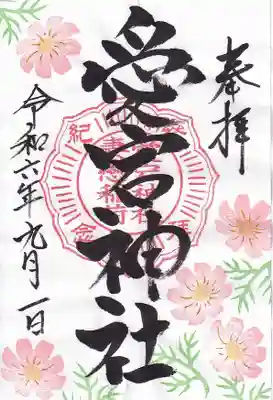 奉拝
愛宕神社
令和六年九月一日